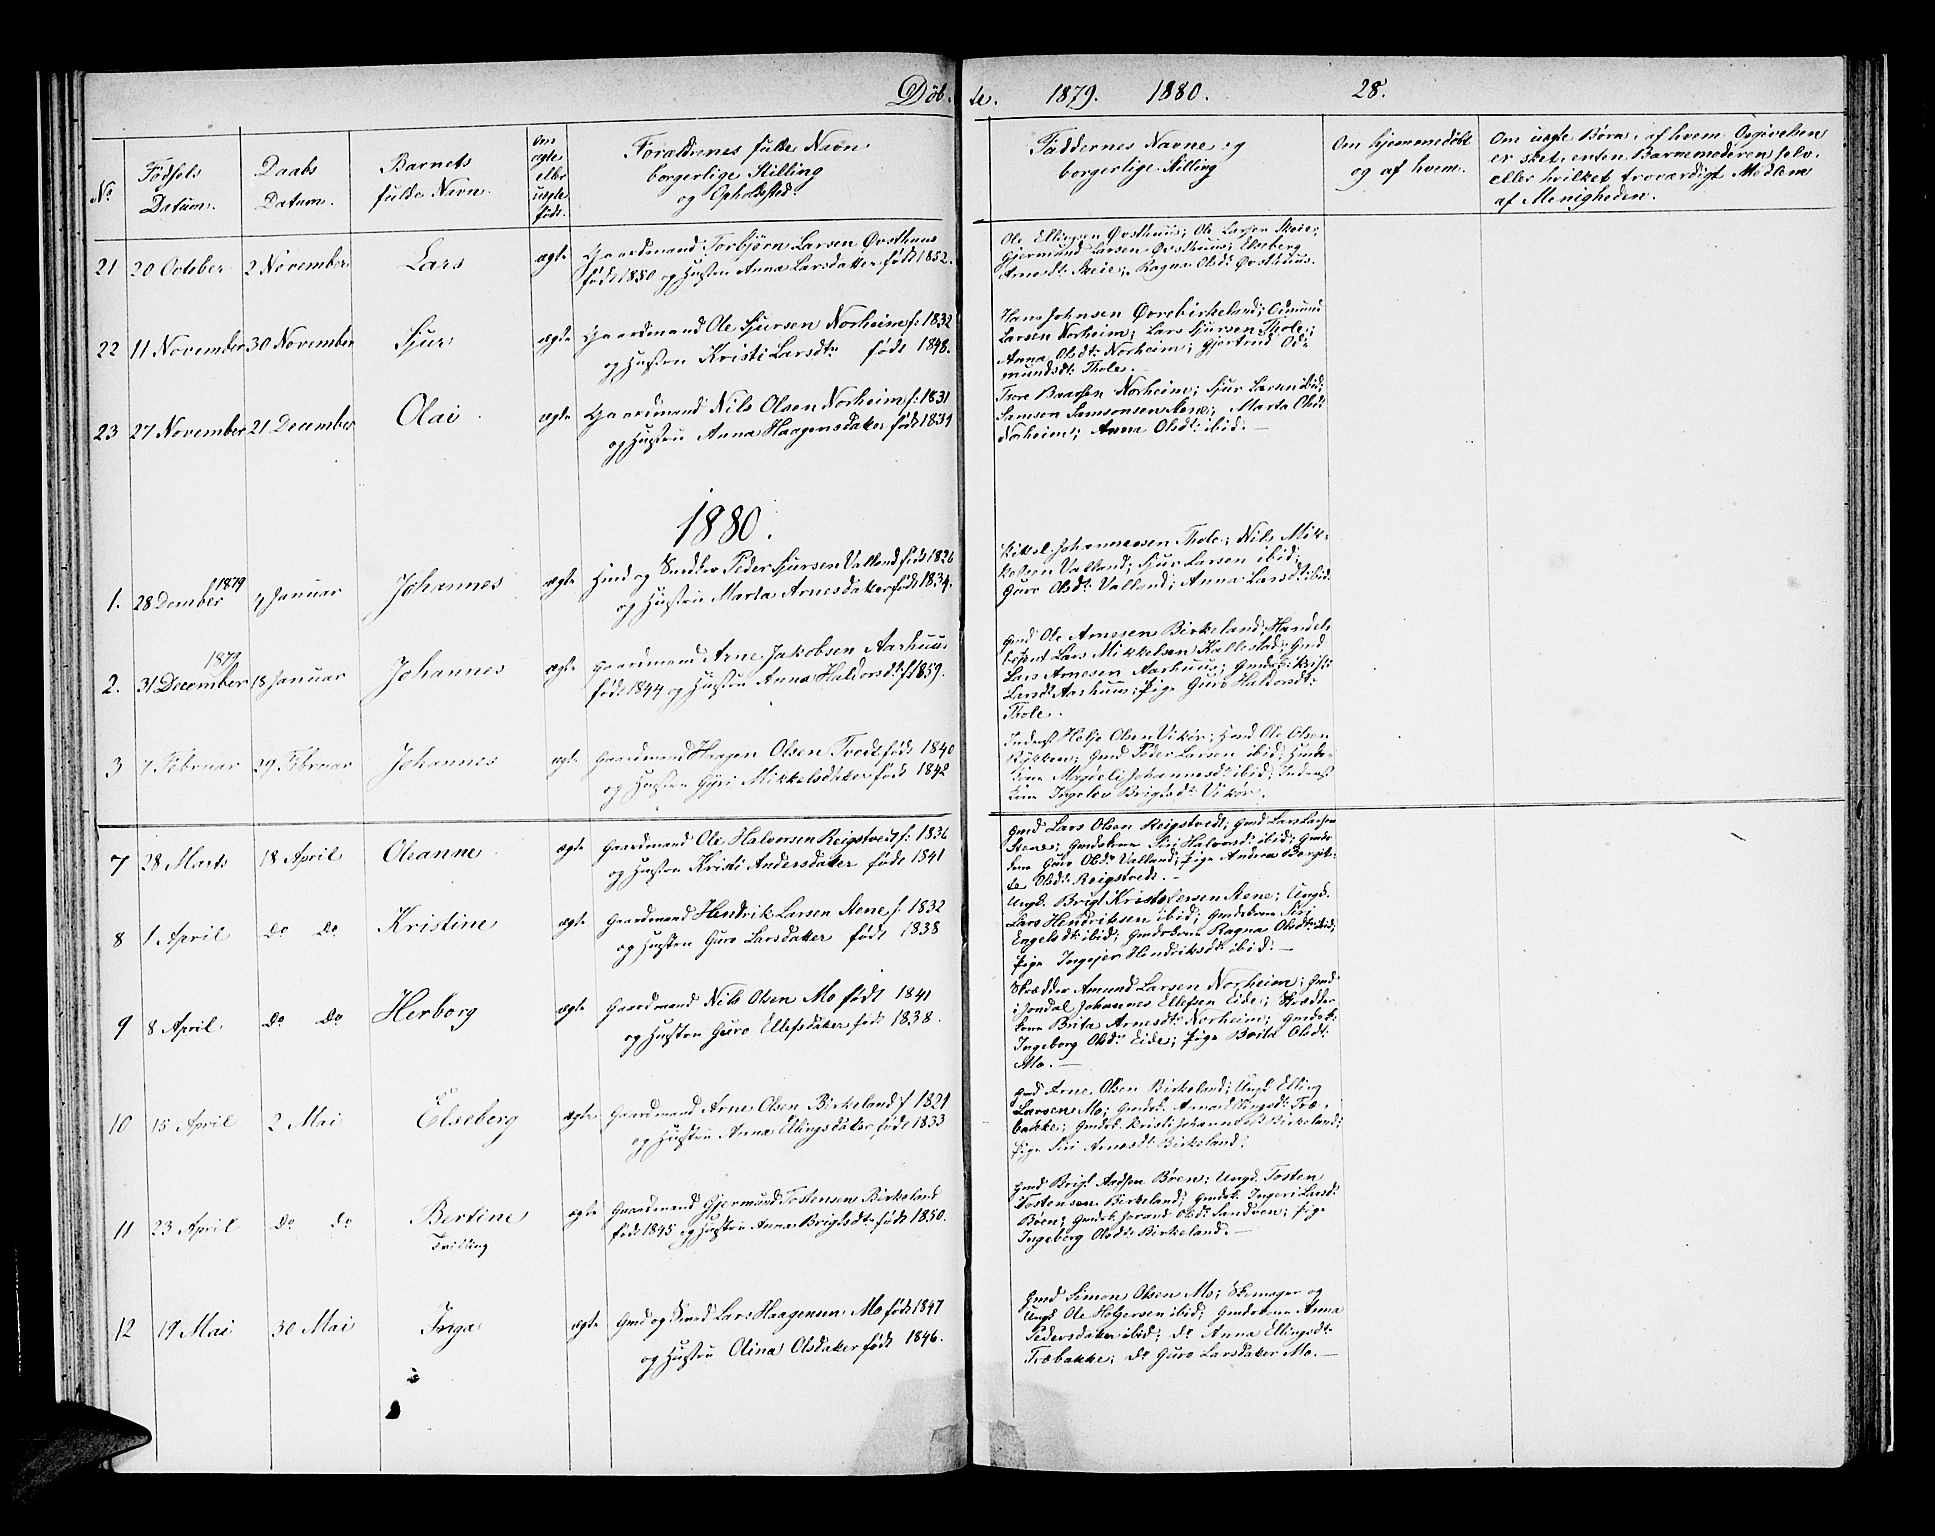 Döb te. 1879. 1880. 28.
No
Födsels
Datum.
Daabs
Datum.
Barnets
fulde Navn.
Om
ægte
eller
uægte
födt.
Forældrenes fulde Navn
borgerlige Stilling
og Opholdssted.
Faddernes Navne og
borgerlige Stilling
Om hjemmedöbt
og af hvem.
Om uægte Börn, af hvem Opgivelsen
er sket, enten Barnemoderen selv,
eller hvilket troværdigt Medlem
af Menigheden.
21 20 October 2 November Lars ægte
Gaardmand Torbjörn Larsen Övsthuus
födt 1850 og Hustru Anna Larsdatter födt 1852.
Ole Ellingsen Övsthuus; Ole Larsen Skeie;
Gjermund Larsen Övsthuus; Elseberg
Arnesdt: Skeie; Ragna Olsdt: Övsthuus.
22 11 November 30 November Sjur ægte
Gaardmand Ole Sjursen Norheim f: 1832
og Hustru Kristi Larsdtr födt 1848.
Hans Johnsen Övrebirkeland; Odmund
Larsen Norheim; Lars Sjursen Thole;
Anna Olsdt: Norheim; Gjertrud Od-
mundsdt: Thole.
23 27 November 21 December Olai ægte
Gaardmand Nils Olsen Norheim f: 1831
og Hustru Anna Haagensdatter födt 1839
Tore Baarsen Norheim; Sjur Larsen ibid;
Samson Samsonsen Stene; Marta Olsdt
Norheim; Anna Olsdt: ibid.—
1880.
1. 28 Dember 1879 4 Januar Johannes ægte
Hmd og Snedker Peder Sjursen Valland födt 1826
og Hustru Marta Arnesdatter födt 1834.
Johannessen Thole; Nils Mik-
kelsen Valland; Sjur Larsen ibid;
Guro Olsdt: Valland; Anna Larsdt: ibid.
2. 31 December 1879 18 Januar Johannes ægte
Gaardmand Arne Jakobsen Aarhuus
födt 1844 og Hustru Anna Haldorsdt: f 1859.
Gmd Ole Arnesen Birkeland; Handels
betjent Lars Mikkelsen Kallestad; Gmd
Lars Arnesen Aarhuus; Gmdsk: Kristi
Larsdt: Aarhuus; Pige Guro Haldorsdt:
Thole.
3 7 Februar 29 Februar Johannes ægte
Gaardmand Haagen Olsen Tvedt födt 1840
og Hustru Gyri Mikkelsdatter födt 1842
Inderst Helje Olsen Vikör; Hmd Ole Olsen
Rykken; Gmd Peder Larsen ibid; Hmds-
kone Magdeli Johannesdt: ibid; Inderst
kone Ingelev Brigtsdt: Vikör.
7 28 Marts 18 April Oleanne ægte
Gaardmand Ole Halvorsen Reigstvedt f: 1836
og Hustru Kristi Andersdatter födt 1841
Gmd Lars Olsen Reigstvedt; Gmd Lars Larsen
Stene; Gmdskone Siri Halvorsdt: ibid; Gmds-
kone Guro Olsdtr Valland; Pige Andrea Bergit-
te Olsdt: Reigstvedt.—
8 1 April Do Do Kristine ægte
Gaardmand Hendrik Larsen Stene f: 1832
og Hustru Guro Larsdatter födt 1838
Ungd. Brigt Kristofersen Stene; Ungd.
Lars Hendriksen ibid; Gmdskone Siri
Engelsdt: ibid; Gmdskone Ragna Olsdt: ibid;
Pige Ingejer Hendriksdt: ibid:—
9 8 April Do Do Herborg ægte
Gaardmand Nils Olsen Mo födt 1841
og Hustru Guro Ellefsdatter födt 1838.
Skrædder Amund Larsen Norheim; Gmd
i Jondal Johannes Ellefsen Eide; Skrædder
kone Brita Arnesdt: Norheim; Gmdsk:
Ingeborg Olsdt: Eide; Pige Brita Olsdt:
Mo.—
10 15 April 2 Mai Elseberg ægte
Gaardmand Arne Olsen Birkeland f 1821
og Hustru Anna Ellingsdatter födt 1833
Gmd Arne Olsen Birkeland; Ungd: Elling
Larsen Mo; Gmdsk. Anna Ellingsdt: Træ-
bakke; Gmdsk. Kristi Johannesdt: Birkeland;
Pige Siri Arnesdt: Birkeland.
11 23 April Do Do Bertine ægte
Tvilling
Gaardmand Gjermund Tostensen Birkeland
födt 1845 og Hustru Anna Brigtsdt: födt 1850.
Gmd Brigt Aadsen Bören; Ungd. Tosten
Tostensen Birkeland; Gmdsk. Ingeri Larsd:
Bören; Gmdsk. Jorand Olsdt: Sandven; Pige
Ingeborg Olsdt: Birkeland.—
12 19 Mai 30 Mai Inga ægte
Gmd og Smed Lars Haagensen Mo födt 1847
og Hustru Olina Olsdatter födt 1846.
Gmd Simon Olsen Mo; Skomager og
Ungd Ole Holgersen ibid; Gmdskone Anna
Pedersdatter ibid; Do Anna Ellingsdt:
Træbakke; Do Guro Larsdatter Mo.—